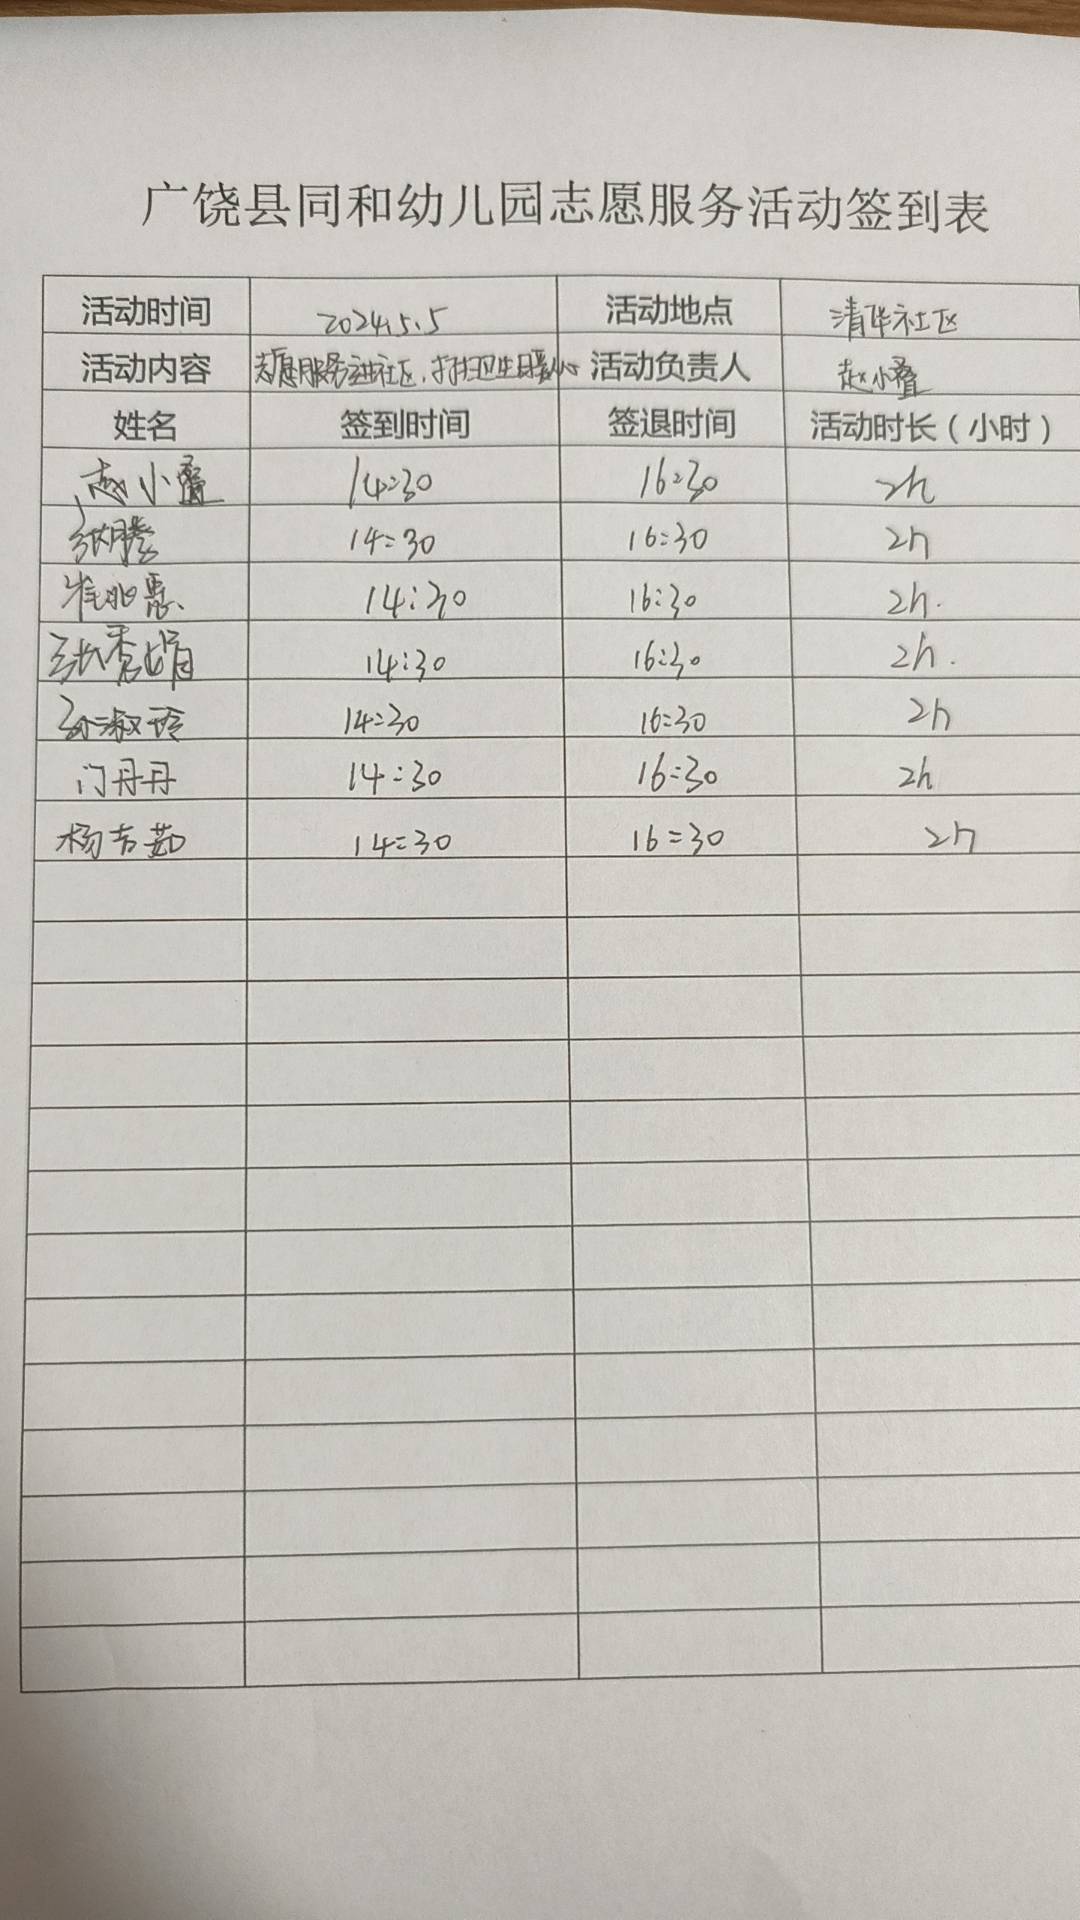 广饶县同和幼儿园志愿服务活动签到表
活动时间 2024.5.5 活动地点 清华社区
活动内容 志愿服务进社区,打扫卫生暖人心 活动负责人 赵小叠
姓名 签到时间 签退时间 活动时长(小时)
赵小叠 14:30 16:30 2h
张腾 14:30 16:30 2h
14:30 16:30 2h.
张秀娟 14:30 16:30 2h.
孙淑玲 14:30 16:30 2h
门丹丹 14:30 16:30 2h
杨吉茹 14:30 16:30 2h